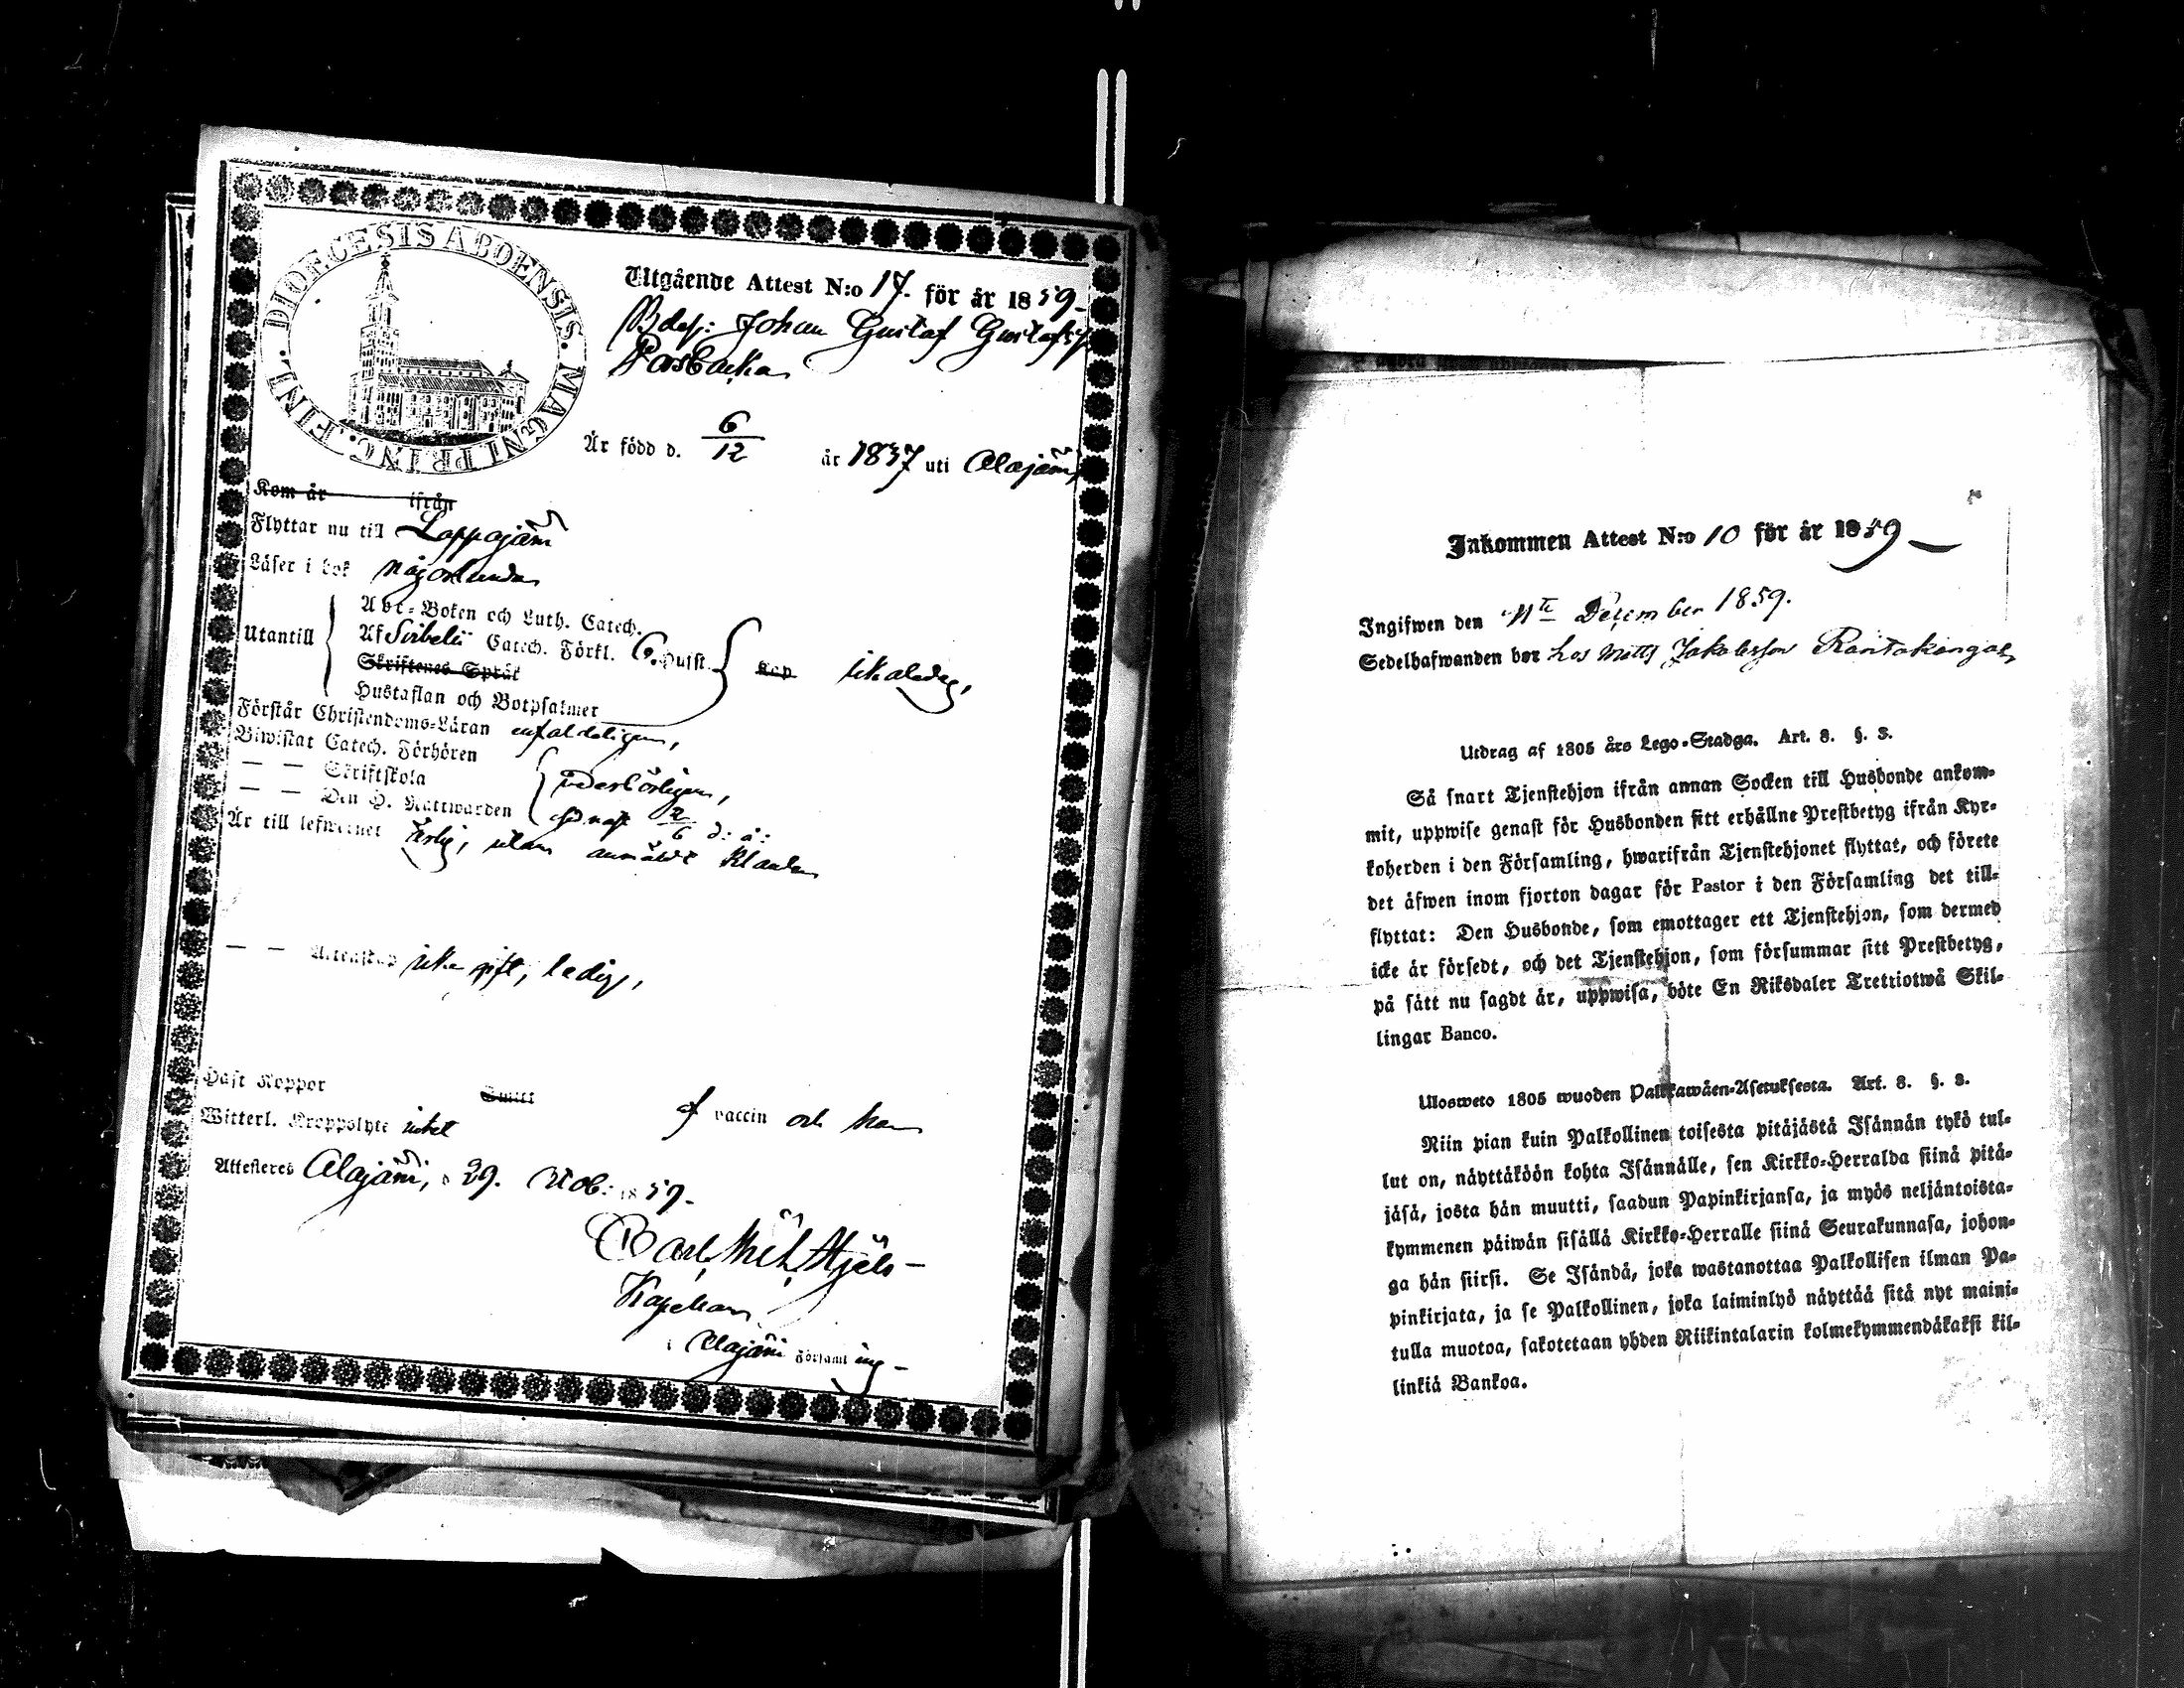 DIOECESIS ABOENSIS. MAGNI PRINC. FINL.
Utgående Attest N:o 17. för år 1859
Johan Gustaf Gustafss
Är född d. 6/12 år 1837 uti Alajärvi
Kom år ifrån
Flyttar nu till Lappajärvi
Läser i bok någorlunda
Utantill
Abc-Boken och Luth. Catech.
Af Svibelii Catech. Förkl. 6. Hufst.
Skriftenes Språk
Hustaflan och Botpsalmer
Förstår Christendoms-Läran enfaldeligen,
Biwistat Catech. Förhören
— — Skriftskola
— — Den H. Nattwarden
2/6 d: å:
Är till lefwernet ärlig, utan anmäldt klander
— — Ächtenskap icke gift, ledig,
Haft Koppor
vaccin och han
Witterl. Kroppslyte intet
Attesteras Alajärvi, d 29. Nob: 1859.
Kapellan
i Alajärvi Församling
Inkommen Attest N:o 10 för år 1859
Ingifwen den 11te December 1859.
Sedelhafwanden bor hos Matts Jakobsson Rantakangas
Utdrag af 1805 års Lego-Stadga. Art. 8. §. 3.
Så snart Tjenstehjon ifrån annan Socken till Husbonde ankom-
mit, uppwise genast för Husbonden sitt erhållne Prestbetyg ifrån Kyr-
koherden i den Församling, hwarifrån Tjenstehjonet flyttat, och förete
det äfwen inom fjorton dagar för Pastor i den Församling det till-
flyttat: Den Husbonde, som emottager ett Tjenstehjon, som dermed
icke är försedt, och det Tjenstehjon, som försummar sitt Prestbetyg,
på sätt nu sagdt är, uppwisa, böte En Riksdaler Trettiotwå Skil-
lingar Banco.
Ulosweto 1805 wuoden Palkkawäen-Asetuksesta. Art. 8. §. 3.
Niin pian kuin Palkollinen toisesta pitäjästä Isännän tykö tul-
lut on, näyttäköön kohta Isännälle, sen Kirkko-Herralda siinä pitä-
jäsä, josta hän muutti, saadun Papinkirjansa, ja myös neljäntoista-
kymmenen päiwän sisällä Kirkko-Herralle siinä Seurakunnasa, johon-
ga hän siirsi. Se Isändä, joka wastanottaa Palkollisen ilman Pa-
pinkirjata, ja se Palkollinen, joka laiminlyö näyttää sitä nyt maini-
tulla muotoa, sakotetaan yhden Riikintalarin kolmekymmendäkaksi kil-
linkiä Bankoa.